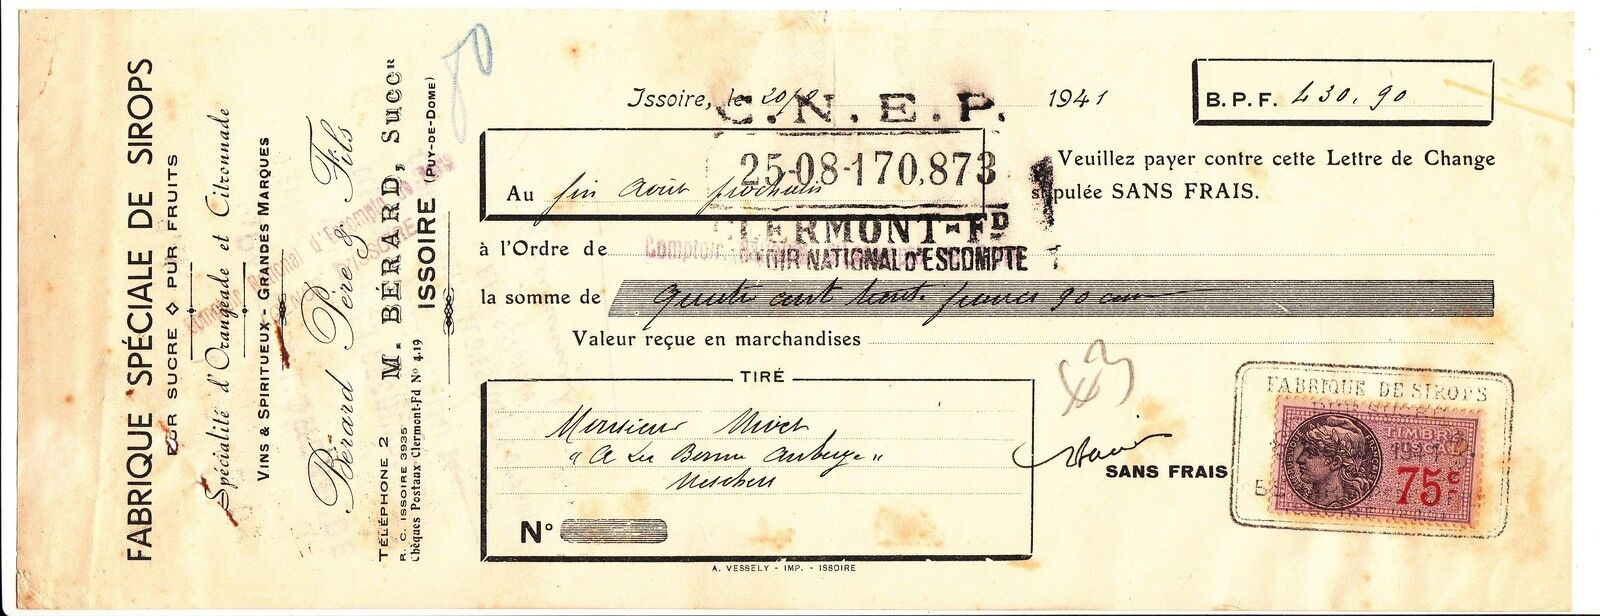 FABRIQUE SPÉCIALE DE SIROPS
PUR SUCRE ◇ PUR FRUITS
Spécialité d'Orangeade et Citronnade
VINS & SPIRITUEUX - GRANDES MARQUES
Bérard Père & Fils
M. BÉRARD, Succr
ISSOIRE (PUY-DE-DOME)
TÉLÉPHONE 2
R. C. ISSOIRE 3935
Chèques Postaux Clermont-Fd No 4.19
80
Issoire, le 20/8 1941
B. P. F. 430,90
C. N. E. P.
25-08-170,873
CLERMONT-FD
NATIONAL D'ESCOMPTE
Au fin Août prochain
Veuillez payer contre cette Lettre de Change
stipulée SANS FRAIS.
à l'Ordre de Comptoir
la somme de Quatre cent trente francs 90 cent
Valeur reçue en marchandises
TIRÉ
Monsieur Nivet
"A La Bonne Auberge"
Neschers
No
SANS FRAIS
FABRIQUE DE SIROPS
TIMBRE
75 c
A. VESSELY - IMP. - ISSOIRE